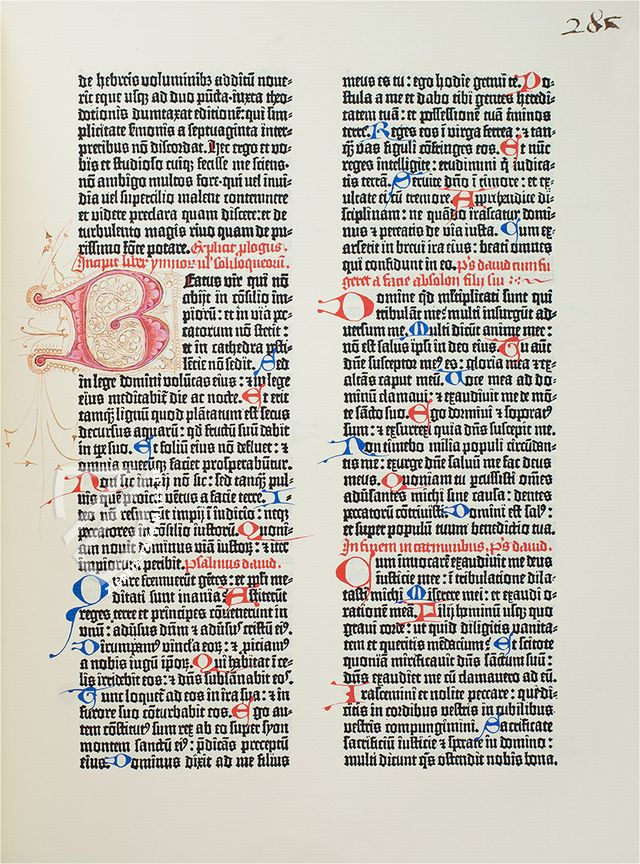 285
de hebreis voluminibꝫ additū noue-
rit eque usqꝫ ad duo pūcta·iuxta theo-
dotionis dumtaxat editionē:qui sim-
plicitate s̄monis a septuaginta inter-
pretibus nō discordat. Hec ergo et vo-
bis et studioso cuiqꝫ fecisse me sciens·
nō ambigo multos fore·qui vel invi-
dia vel supercilio malent contemnere
et videre preclara quam discere:et de
turbulento magis rivo quam de pu-
rissimo fōte potare. Explicit plogus·
Incipit liber ymnoꝝ ul' soliloquioꝝ.
Beatus vir qui nō
abijt in cōsilio im-
pioꝝ:et in via pec-
catorum nō stetit:
et in cathedra pesti-
lētie nō sedit. Sed
in lege domini volūtas eius:⁊ in lege
eius meditabit̄ die ac nocte. Et erit
tamqꝫ lignū quod plātatum est secus
decursus aquaꝝ:qd fructū suū dabit
in tpe suo. Et foliū eius nō defluet:et
omnia quecūqꝫ faciet prosperabūtur.
Non sic impij nō sic:sed tanqꝫ pul-
uis quē proicit ventus a facie terre. I-
deo nō resurgūt impij ī iudicio:neqꝫ
peccatores in cōsilio iustoꝝ. Quoni-
am nouit dominus viā iustoꝝ:⁊ iter
impiorum peribit. Psalmus dauid.
Quare fremuerūt gētes:et ppli me-
ditati sunt inania? Astiterūt
reges terre et principes cōuenerunt in
vnū:aduersus dnm̄ ⁊ aduersus cristū eiꝰ.
Dirumpamꝰ vincla eoꝝ:⁊ piciamꝰ
a nobis iugū ipoꝝ. Qui habitat ī ce-
lis irridebit eos:⁊ dns̄ subsānabit eoſ.
Tunc loquet̄ ad eos in ira sua:⁊ in
furore suo cōturbabit eos. Ego au-
tem cōstitutꝰ sum rex ab eo super syon
montem sanctū eiꝰ:p̄dicās preceptū
eius. Dominus dixit ad me filius
meus es tu:ego hodie genui te. Po-
stula a me et dabo tibi gentes heredi-
tatem tuā:et possessionē tuā t̄minos
terre. Reges eos ī virga ferrea:⁊ tan-
qꝫ vas figuli cōfringes eos. Et nūc
reges intelligite:erudimini qͥ iudica-
tis terrā. Seruite dno ī timore:et ex-
ultate ei cū tremore. Apprehendite di-
sciplinam:ne quādo irascatur domi-
nus ⁊ pereatis de via iusta. Cum ex-
arserit in breui ira eius:beati omnes
qui confidunt in eo. Pꝰs dauid cum fu
geret a facie absolon filij sui
Domine qd multiplicati sunt qui
tribulāt me:multi insurgūt ad-
uersum me. Multi dicūt anime mee:
nō est salus ipsi in deo eius. Tu autē
dnē susceptor meꝰ es:gloria mea ⁊ ex-
altās caput meū. Uoce mea ad do-
minū clamaui:⁊ exaudiuit me de mō-
te sācto suo. Ego dormiui ⁊ soporatꝰ
sum:⁊ exsurrexi quia dn̄s suscepit me.
Non timebo milia populi circūdan-
tis me:exurge dnē saluū me fac deus
meus. Quoniam tu percussisti om̄es
aduersantes michi sine causa:dentes
peccatorū cōtriuisti. Domini est salꝰ:
et super populū tuum benedictio tua.
In finem in carminibus. Pꝰs dauid.
Cum inuocarē exaudiuit me deus
iusticie mee:ī tribulatione dila-
tasti michi Miserere mei:et exaudi o-
rationē meā. Filij hominū usqꝫ quo
graui corde:ut quid diligitis vanita-
tem et queritis mēdacium? Et scitote
quoniā mirificauit dn̄s sanctum suū:
dn̄s exaudiet me cū clamauero ad eū.
Irascemini et nolite peccare:que di-
citis in cordibus vestris in cubilibus
vestris compungimini. Sacrificate
sacrificiū iusticie ⁊ sperate in domino:
multi dicunt qͥs ostendit nobis bona.